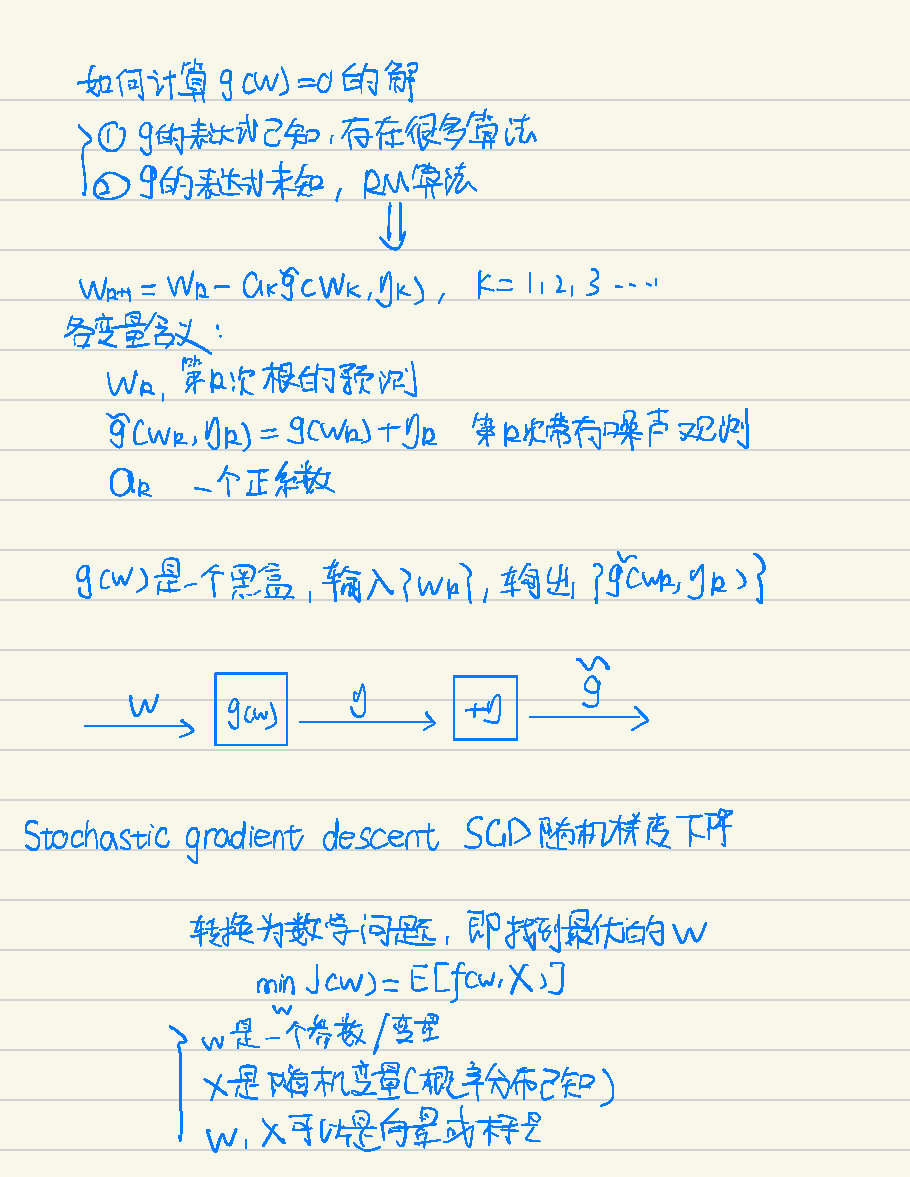 如何计算 g(w)=0 的解
① g的表达式已知,存在很多算法
② g的表达式未知, RM算法
⇓
w_{k+1} = w_k - a_k g̃(w_k, η_k), k = 1, 2, 3 ....
各变量含义:
w_k, 第k次根的预测
g̃(w_k, η_k) = g(w_k) + η_k 第k次带有噪声观测
a_k 一个正系数
g(w)是一个黑盒,输入{w_k},输出{g̃(w_k, η_k)}
w g(w) g +η g̃
Stochastic gradient descent SGD随机梯度下降
转换为数学问题,即找到最优的w
min_w J(w) = E[f(w, X)]
w是一个参数/变量
X是随机变量(概率分布已知)
w, X可以是向量或标量